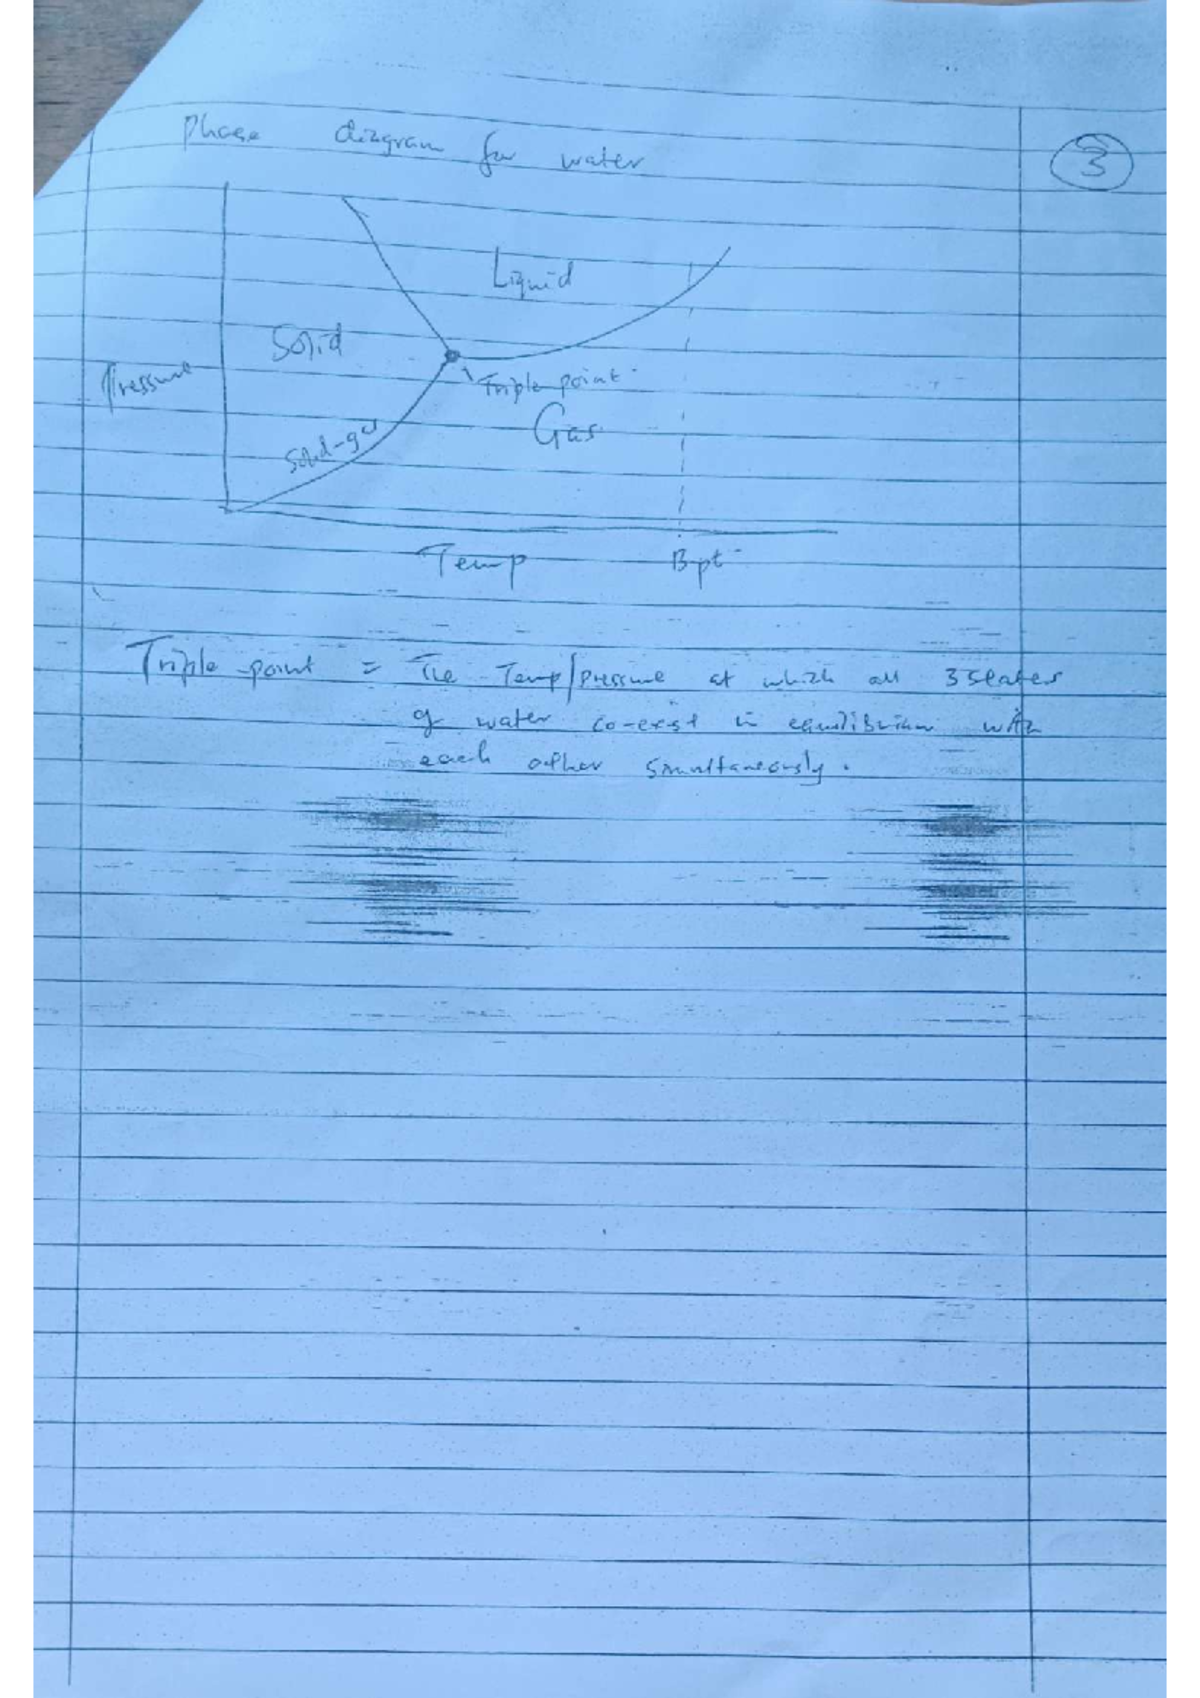 Phase diagram for water
3
Liquid
Solid
Pressure
Triple point
Gas
Solid-gas
Temp
B.pt
Triple point = The Temp/Pressure at which all 3 states
of water co-exist in equilibrium with
each other simultaneously.